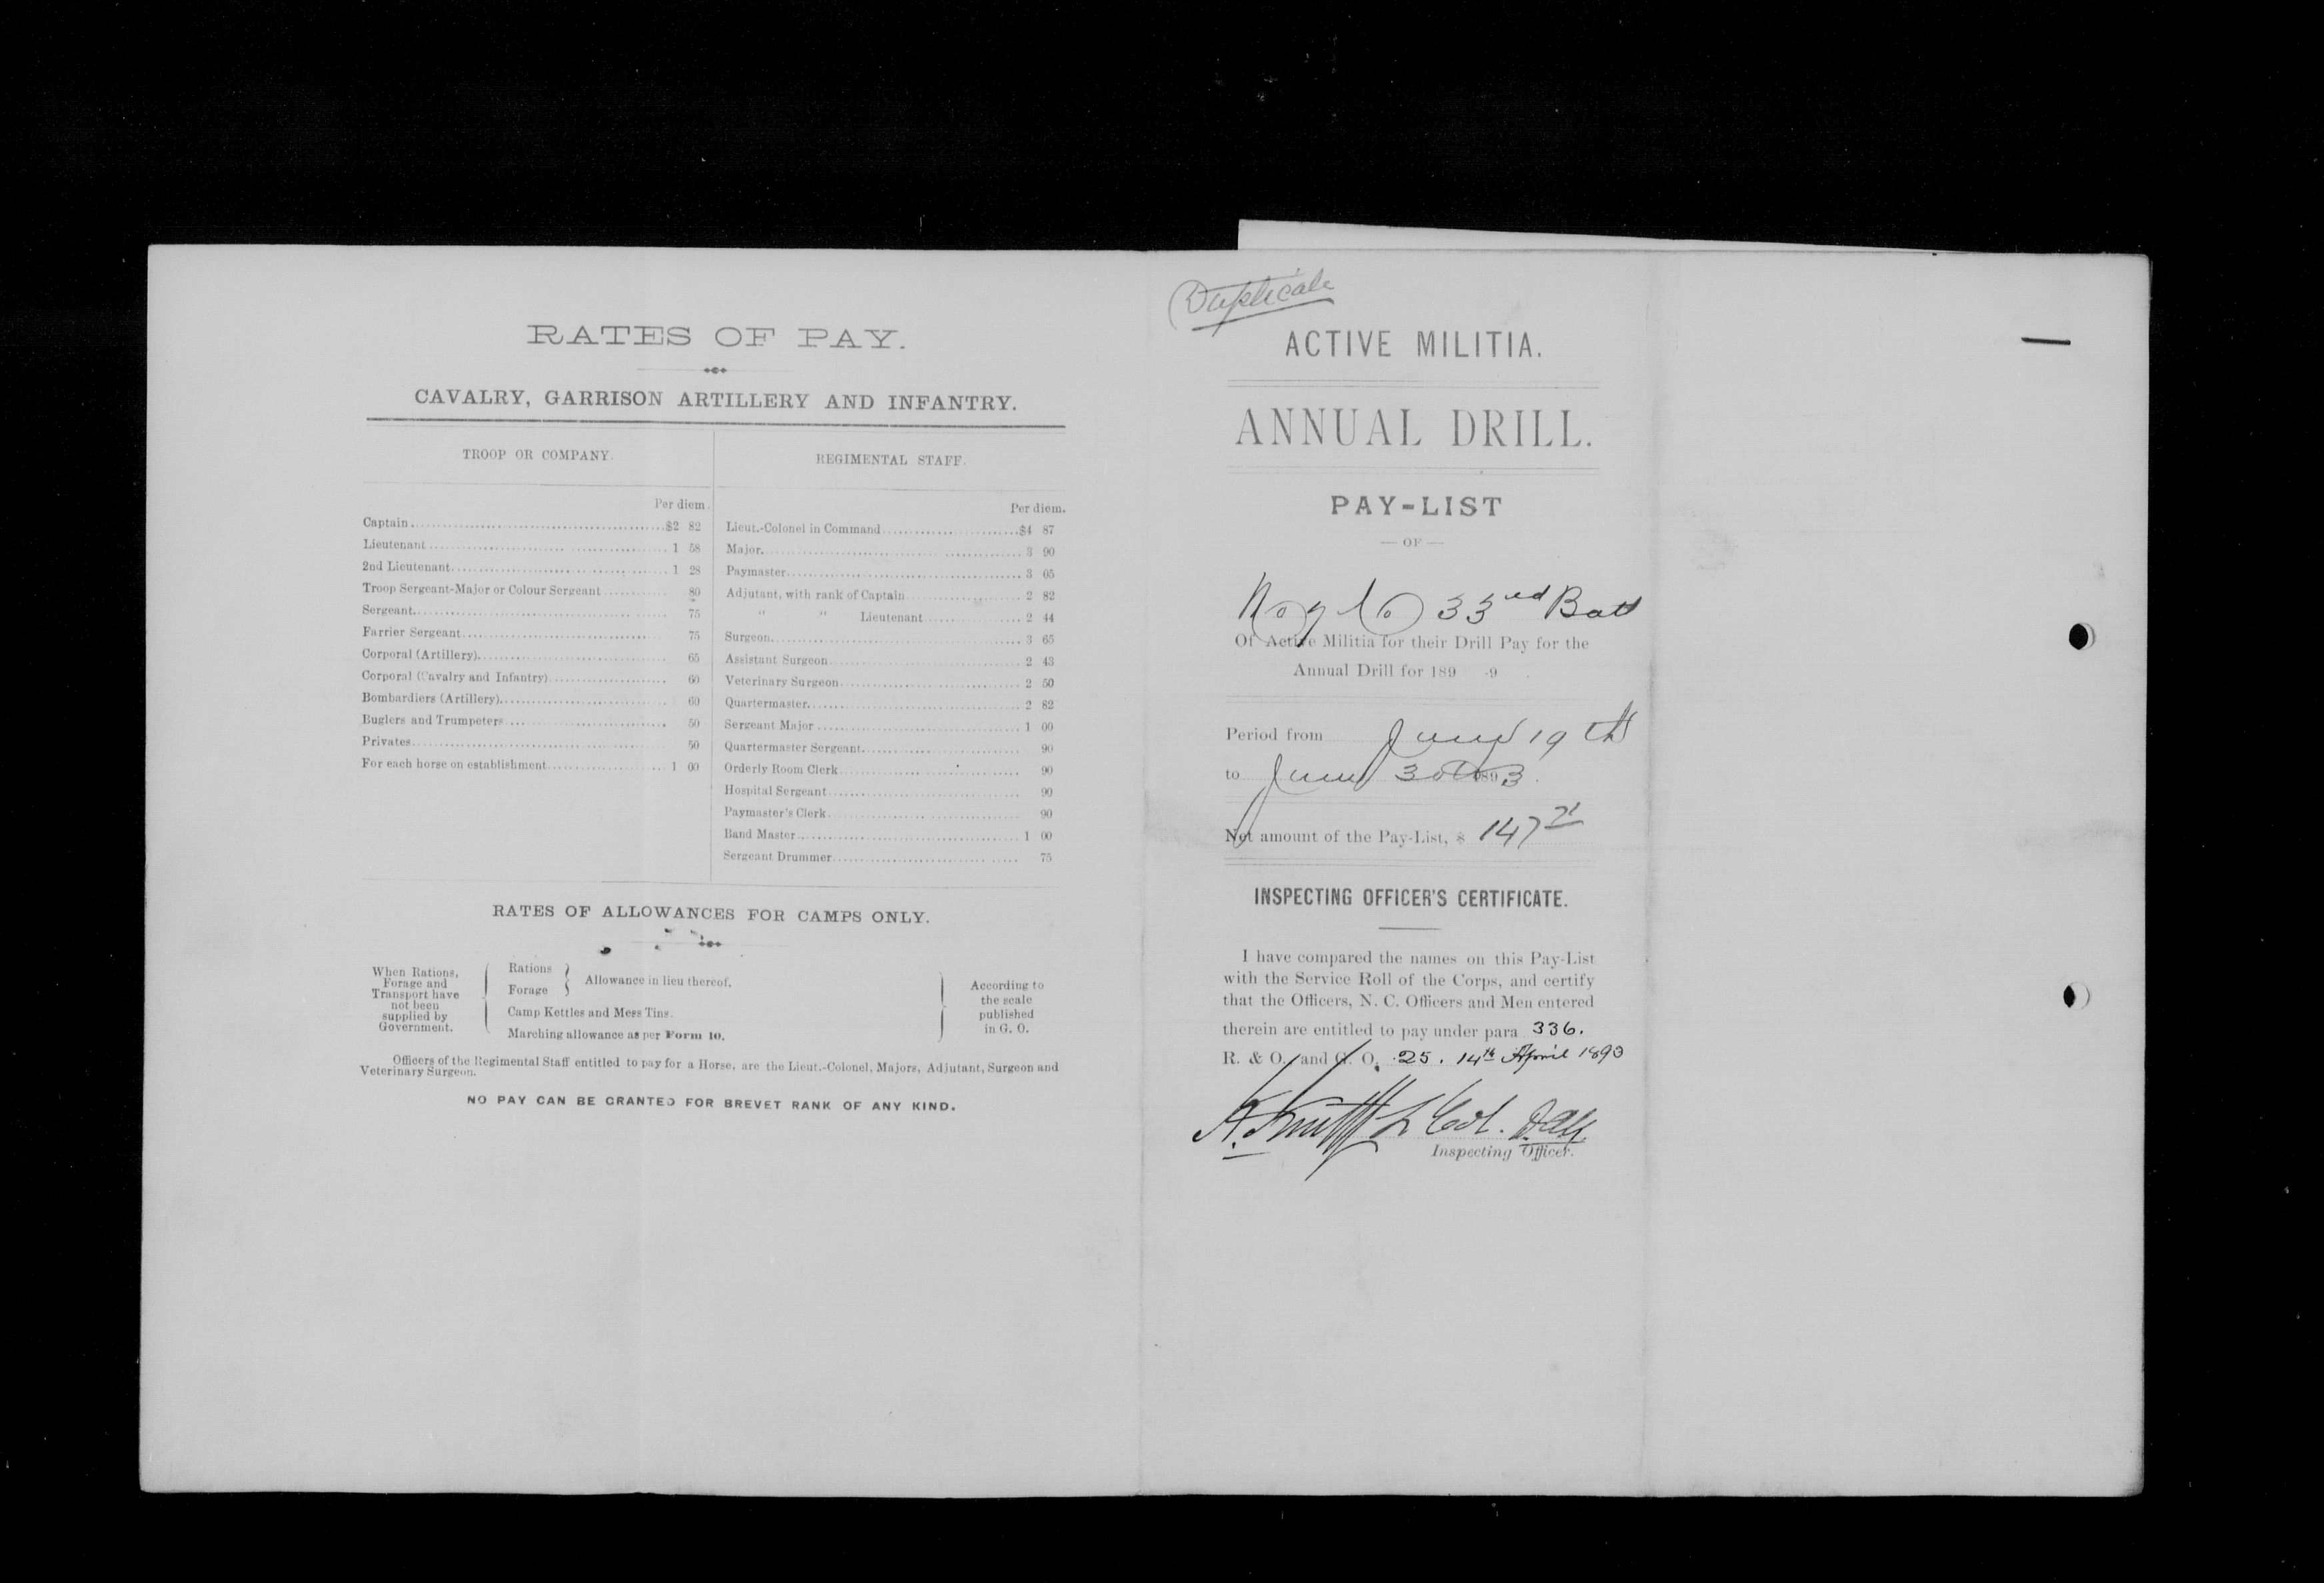 RATES OF PAY.
CAVALRY, GARRISON ARTILLERY AND INFANTRY.
TROOP OR COMPANY.
Per diem.
Captain $2 82
Lieutenant 1 58
2nd Lieutenant 1 28
Troop Sergeant-Major or Colour Sergeant 80
Sergeant 75
Farrier Sergeant 75
Corporal (Artillery) 65
Corporal (Cavalry and Infantry) 60
Bombardiers (Artillery) 60
Buglers and Trumpeters 50
Privates 50
For each horse on establishment 1 00
REGIMENTAL STAFF.
Per diem.
Lieut.-Colonel in Command $4 87
Major 3 90
Paymaster 3 05
Adjutant, with rank of Captain 2 82
" " Lieutenant 2 44
Surgeon 3 65
Assistant Surgeon 2 43
Veterinary Surgeon 2 50
Quartermaster 2 82
Sergeant Major 1 00
Quartermaster Sergeant 90
Orderly Room Clerk 90
Hospital Sergeant 90
Paymaster's Clerk 90
Band Master 1 00
Sergeant Drummer 75
RATES OF ALLOWANCES FOR CAMPS ONLY.
When Rations,
Forage and
Transport have
not been
supplied by
Government.
Rations
Forage
Allowance in lieu thereof.
Camp Kettles and Mess Tins.
Marching allowance as per Form 10.
According to
the scale
published
in G. O.
Officers of the Regimental Staff entitled to pay for a Horse, are the Lieut.-Colonel, Majors, Adjutant, Surgeon and
Veterinary Surgeon.
NO PAY CAN BE GRANTED FOR BREVET RANK OF ANY KIND.
Duplicate
ACTIVE MILITIA.
ANNUAL DRILL.
PAY-LIST
— OF —
No 7 Co 33rd Batt
Of Active Militia for their Drill Pay for the
Annual Drill for 189 -9
Period from June 19th
to June 30th 1893.
Net amount of the Pay-List, $ 147
INSPECTING OFFICER'S CERTIFICATE.
I have compared the names on this Pay-List
with the Service Roll of the Corps, and certify
that the Officers, N. C. Officers and Men entered
therein are entitled to pay under para 336.
R. & O. and G. O. 25. 14th April 1893
Smith L Col.
Inspecting Officer.